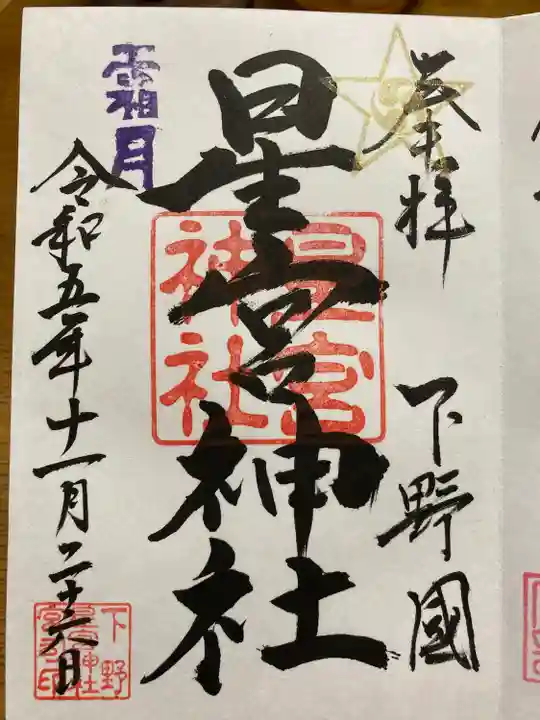 奉拝
下野國
星宮神社
星宮
神社
霜月
令和五年十一月二十六日
下野
星宮神社